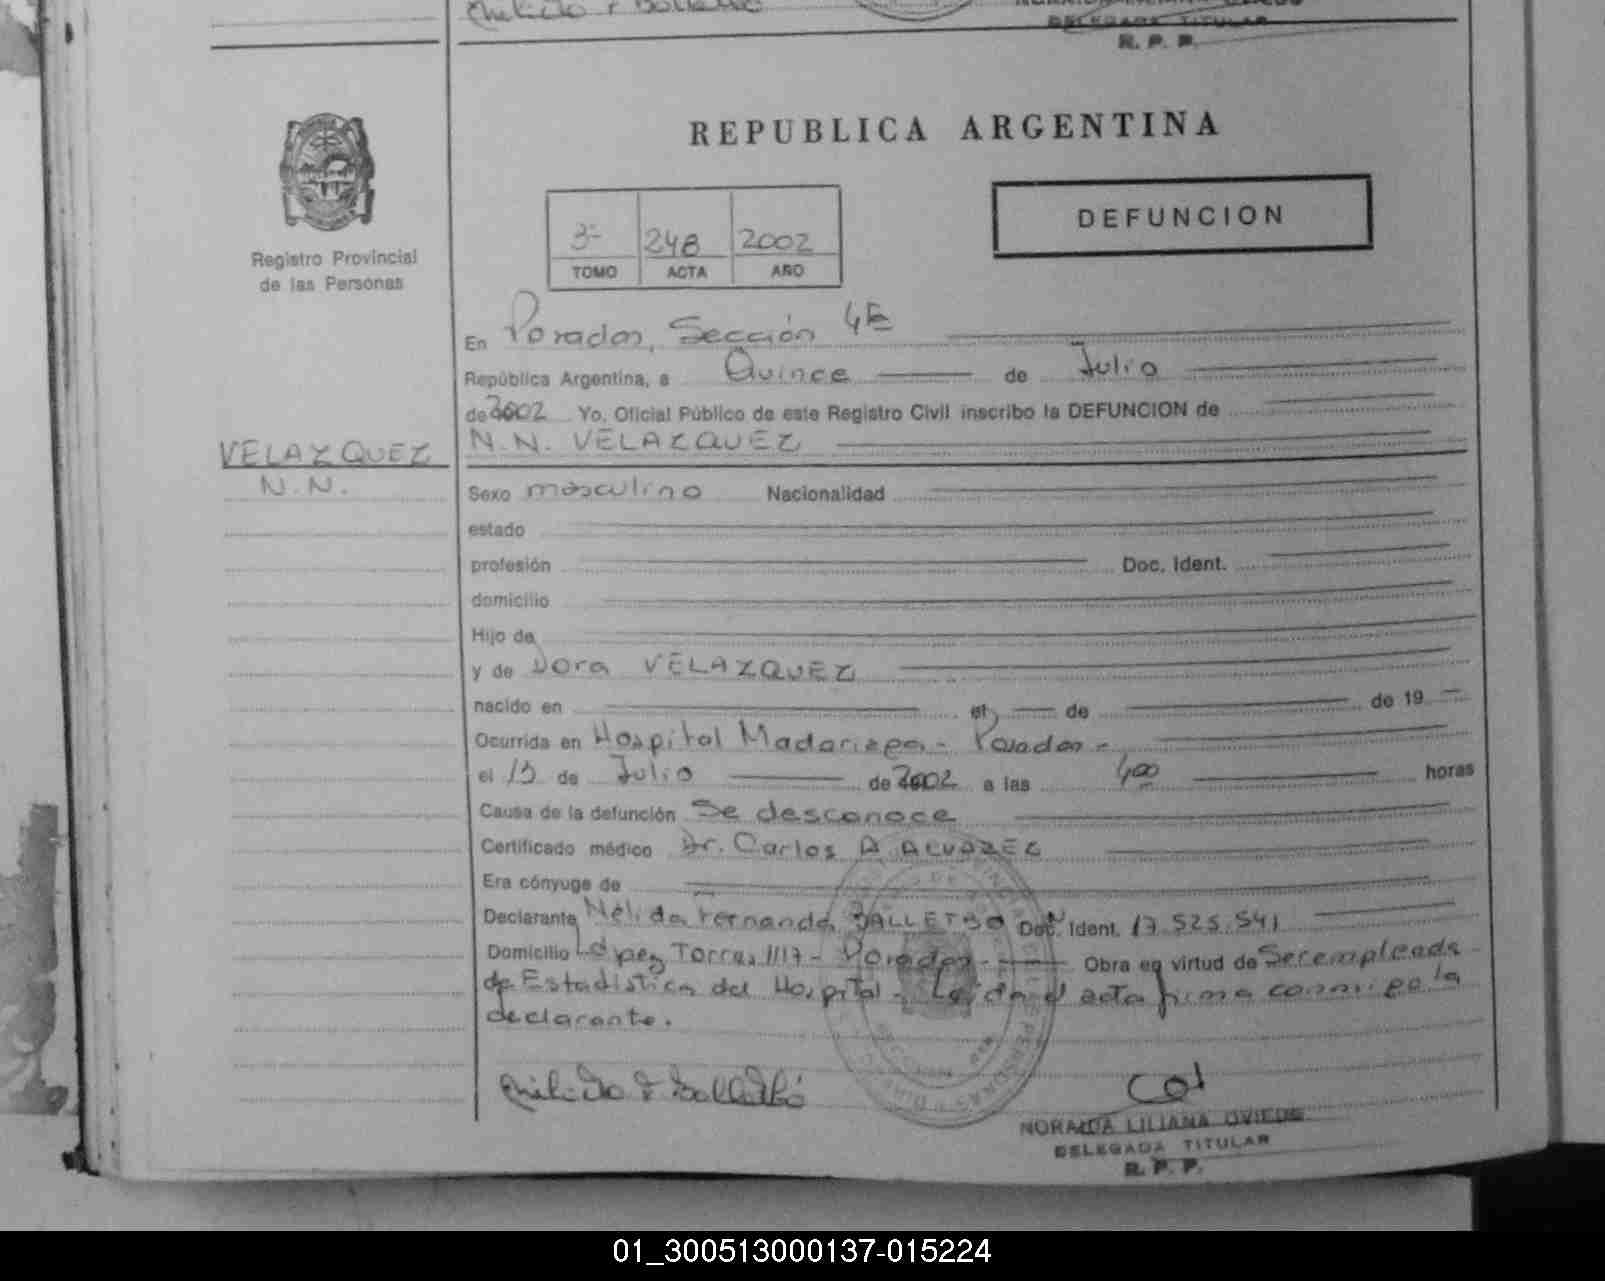 DELEGADA TITULAR
R. P. P.
REPUBLICA ARGENTINA
Registro Provincial
de las Personas
3- 248 2002
TOMO ACTA AÑO
DEFUNCION
En Posadas, Sección 4ta
República Argentina, a Quince de Julio
de 2002 Yo, Oficial Público de este Registro Civil inscribo la DEFUNCION de
N.N. VELAZQUEZ
VELAZQUEZ
N.N.
Sexo masculino Nacionalidad
estado
profesión Doc. Ident.
domicilio
Hijo de
y de Dora VELAZQUEZ
nacido en el de de 19
Ocurrida en Hospital Madariaga - Posadas -
el 13 de Julio de 2002 a las 4,00 horas
Causa de la defunción Se desconoce
Certificado médico Dr. Carlos A ALVAREZ
Era cónyuge de
Declarante Nélida Fernanda BALLETBO Doc. Ident. 17.525.541
Domicilio López Torres 1117 - Posadas - Obra en virtud de Ser empleada
de Estadística del Hospital - Leida el acta firma conmigo la
declarante.
NORAIDA LILIANA OVIEDO
DELEGADA TITULAR
R. P. P.
01_300513000137-015224